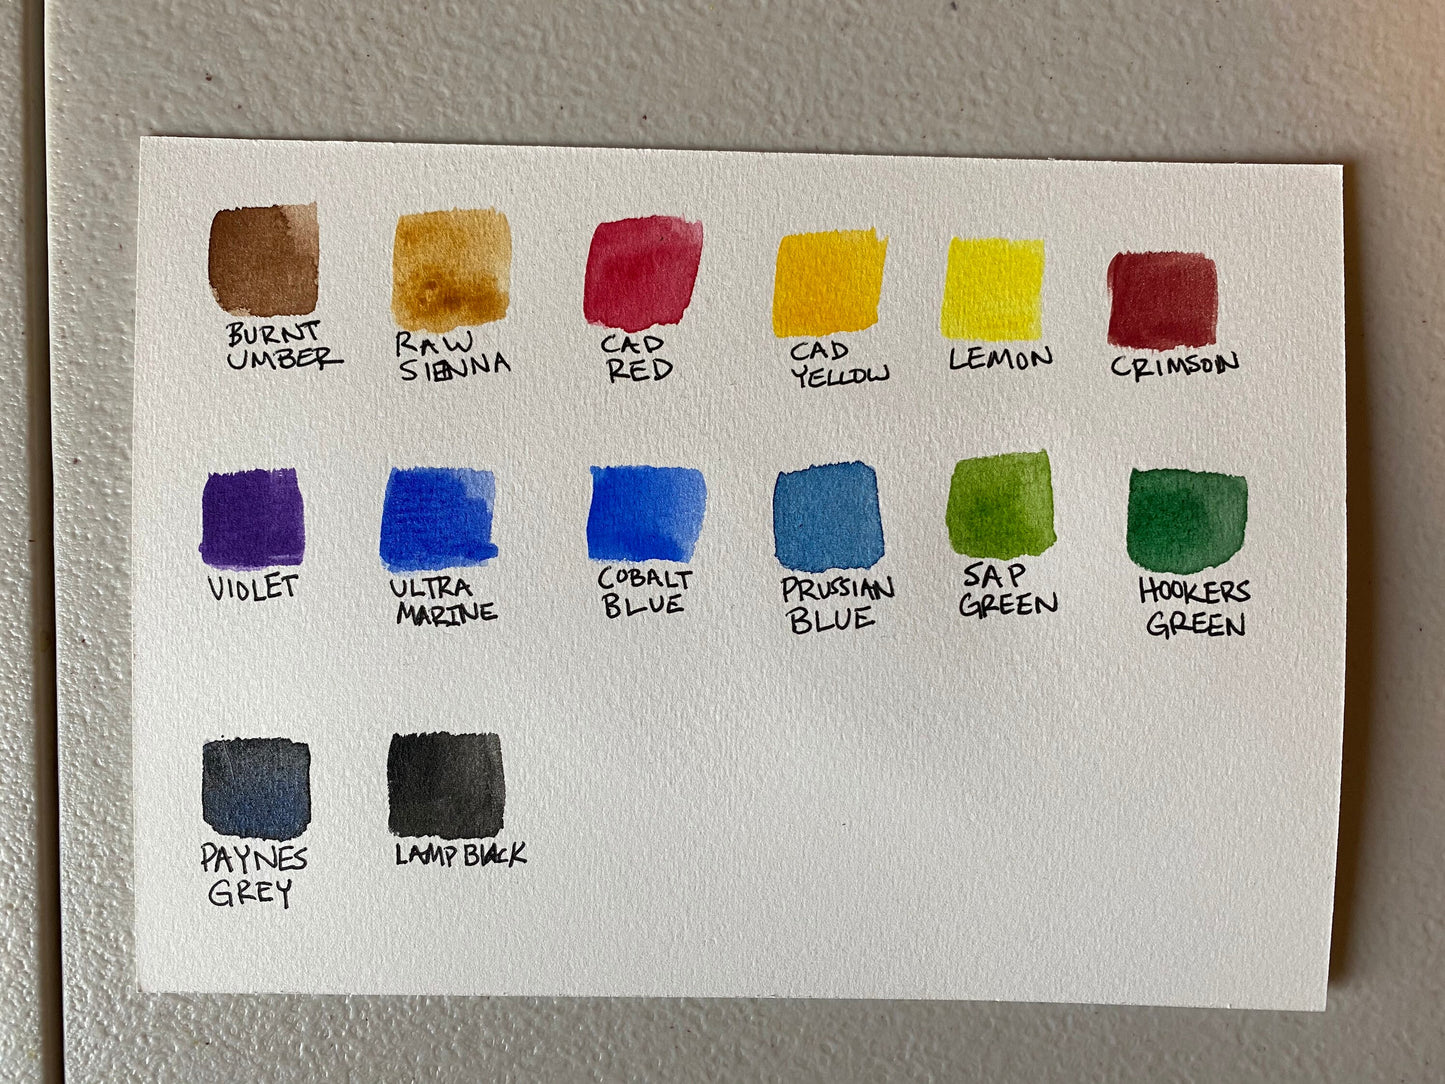 BURNT
UMBER
RAW
SIENNA
CAD
RED
CAD
YELLOW
LEMON
CRIMSON
VIOLET
ULTRA
MARINE
COBALT
BLUE
PRUSSIAN
BLUE
SAP
GREEN
HOOKERS
GREEN
PAYNES
GREY
LAMP BLACK